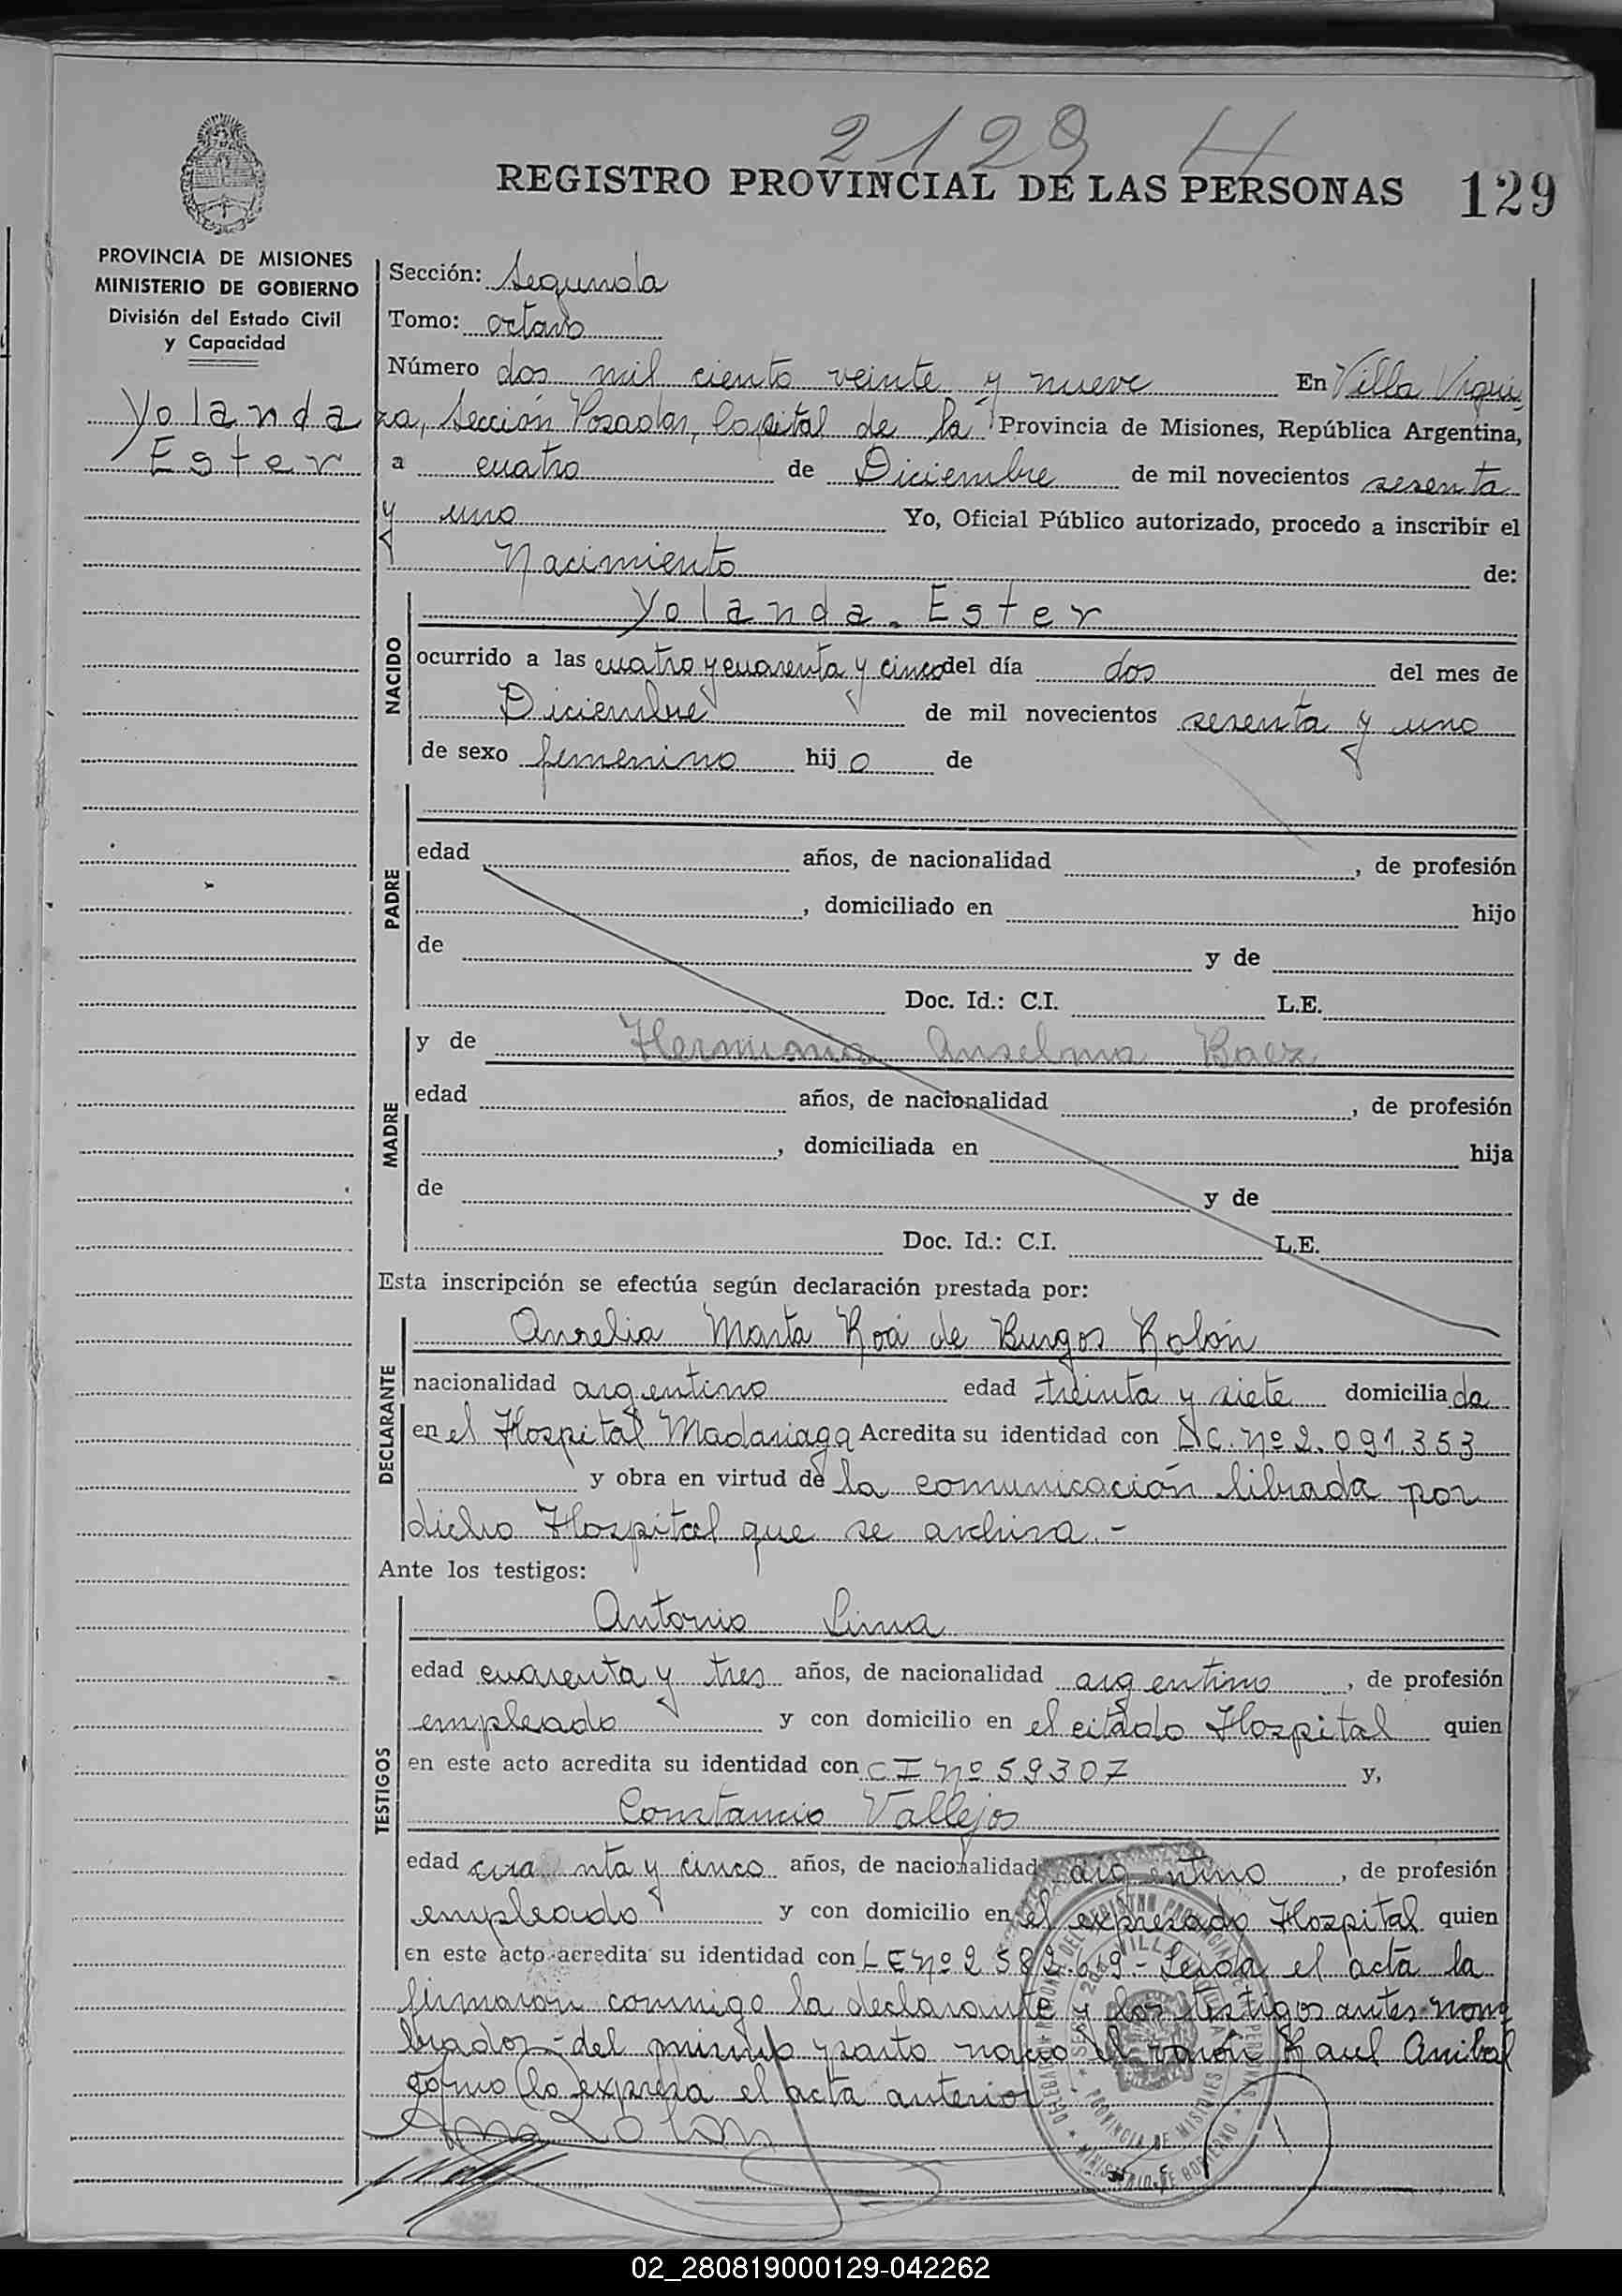 2129 H
REGISTRO PROVINCIAL DE LAS PERSONAS 129
PROVINCIA DE MISIONES
MINISTERIO DE GOBIERNO
División del Estado Civil
y Capacidad
Yolanda
Ester
Sección: Segunda
Tomo: octavo
Número dos mil ciento veinte y nueve En Villa Urqui
za, Sección Posadas, Capital de la Provincia de Misiones, República Argentina,
a cuatro de Diciembre de mil novecientos sesenta
y uno Yo, Oficial Público autorizado, procedo a inscribir el
Nacimiento de:
NACIDO
Yolanda Ester
ocurrido a las cuatro y cuarenta y cinco del día dos del mes de
Diciembre de mil novecientos sesenta y uno
de sexo femenino hij o de
PADRE
edad años, de nacionalidad , de profesión
, domiciliado en hijo
de y de
Doc. Id.: C.I. L.E.
MADRE
y de Herminia Anselma Baez
edad años, de nacionalidad , de profesión
, domiciliada en hija
de y de
Doc. Id.: C.I. L.E.
Esta inscripción se efectúa según declaración prestada por:
DECLARANTE
Aurelia Marta Roa de Burgos Rolón
nacionalidad argentino edad treinta y siete domicilia da
en el Hospital Madariaga Acredita su identidad con L.C. nº 2.091.353
y obra en virtud de la comunicación librada por
dicho Hospital que se archiva.-
Ante los testigos:
TESTIGOS
Antonio Lima
edad cuarenta y tres años, de nacionalidad argentino , de profesión
empleado y con domicilio en el citado Hospital quien
en este acto acredita su identidad con C I nº 59307 y,
Constancio Vallejos
edad cuarenta y cinco años, de nacionalidad argentino , de profesión
empleado y con domicilio en el expresado Hospital quien
en este acto acredita su identidad con L E nº 2 582.619 - Leida el acta la
firmaron conmigo la declarante y los testigos antes nom
brados - del mismo parto nació el varón Raul Anibal
como lo expresa el acta anterior
02_280819000129-042262